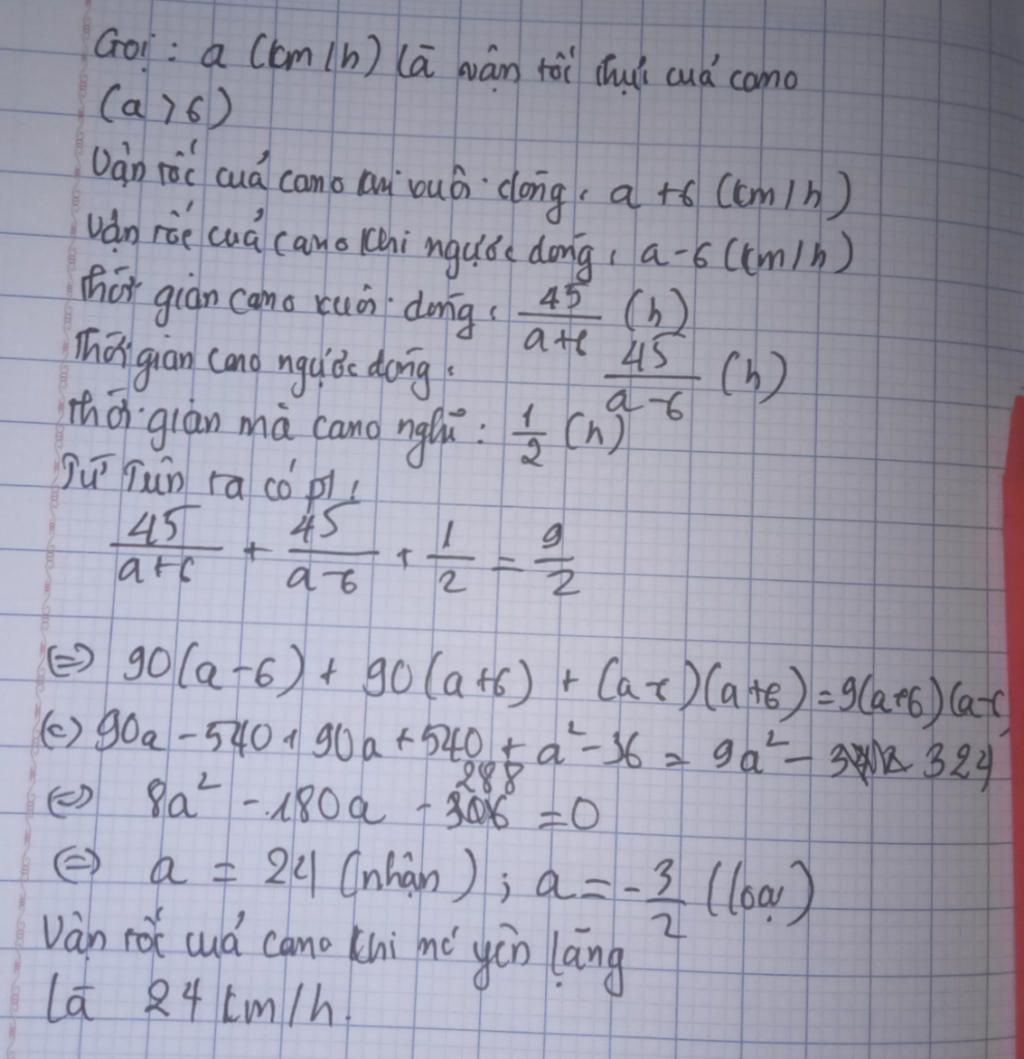 Gọi : a (km/h) là vận tốc thực cuả cano
(a > 6)
Vận tốc cuả cano khi xuôi dòng : a + 6 (km/h)
Vận tốc cuả cano khi ngược dòng : a - 6 (km/h)
Thời gian cano xuôi dòng : 45/(a+6) (h)
Thời gian cano ngược dòng : 45/(a-6) (h)
Thời gian mà cano nghỉ : 1/2 (h)
Từ Trên ta có pt :
45/(a+6) + 45/(a-6) + 1/2 = 9/2
⇔ 90(a-6) + 90(a+6) + (a-6)(a+6) = 9(a+6)(a-6)
⇔ 90a - 540 + 90a + 540 + a² - 36 = 9a² - 324
⇔ 8a² - 180a - 288 = 0
⇔ a = 24 (nhận) ; a = -3/2 (loại)
Vận tốc cuả cano khi nước yên lặng
là 24 km/h.